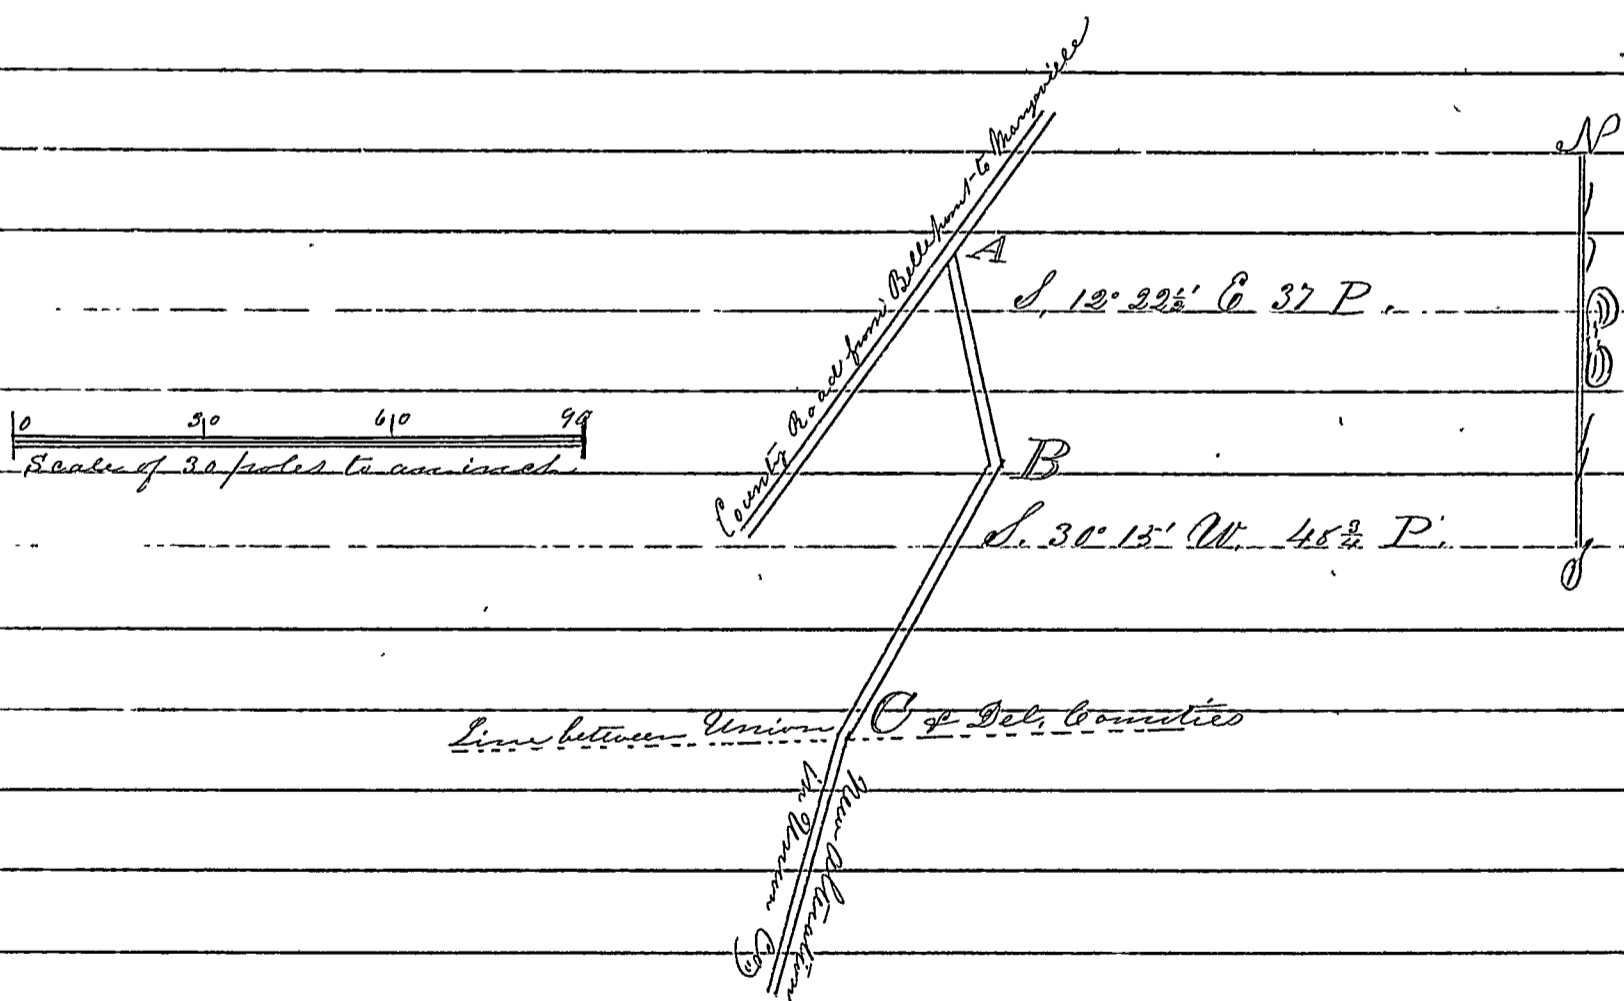 County Road from Bellepoint to Marysville
N
A
S. 12° 22½' E 37 P.
0 30 60 90
Scale of 30 poles to an inch
B
S. 30° 15' W. 48¾ P.
Line between Union C & Del. Counties
New Alteration
in Union Co,
S